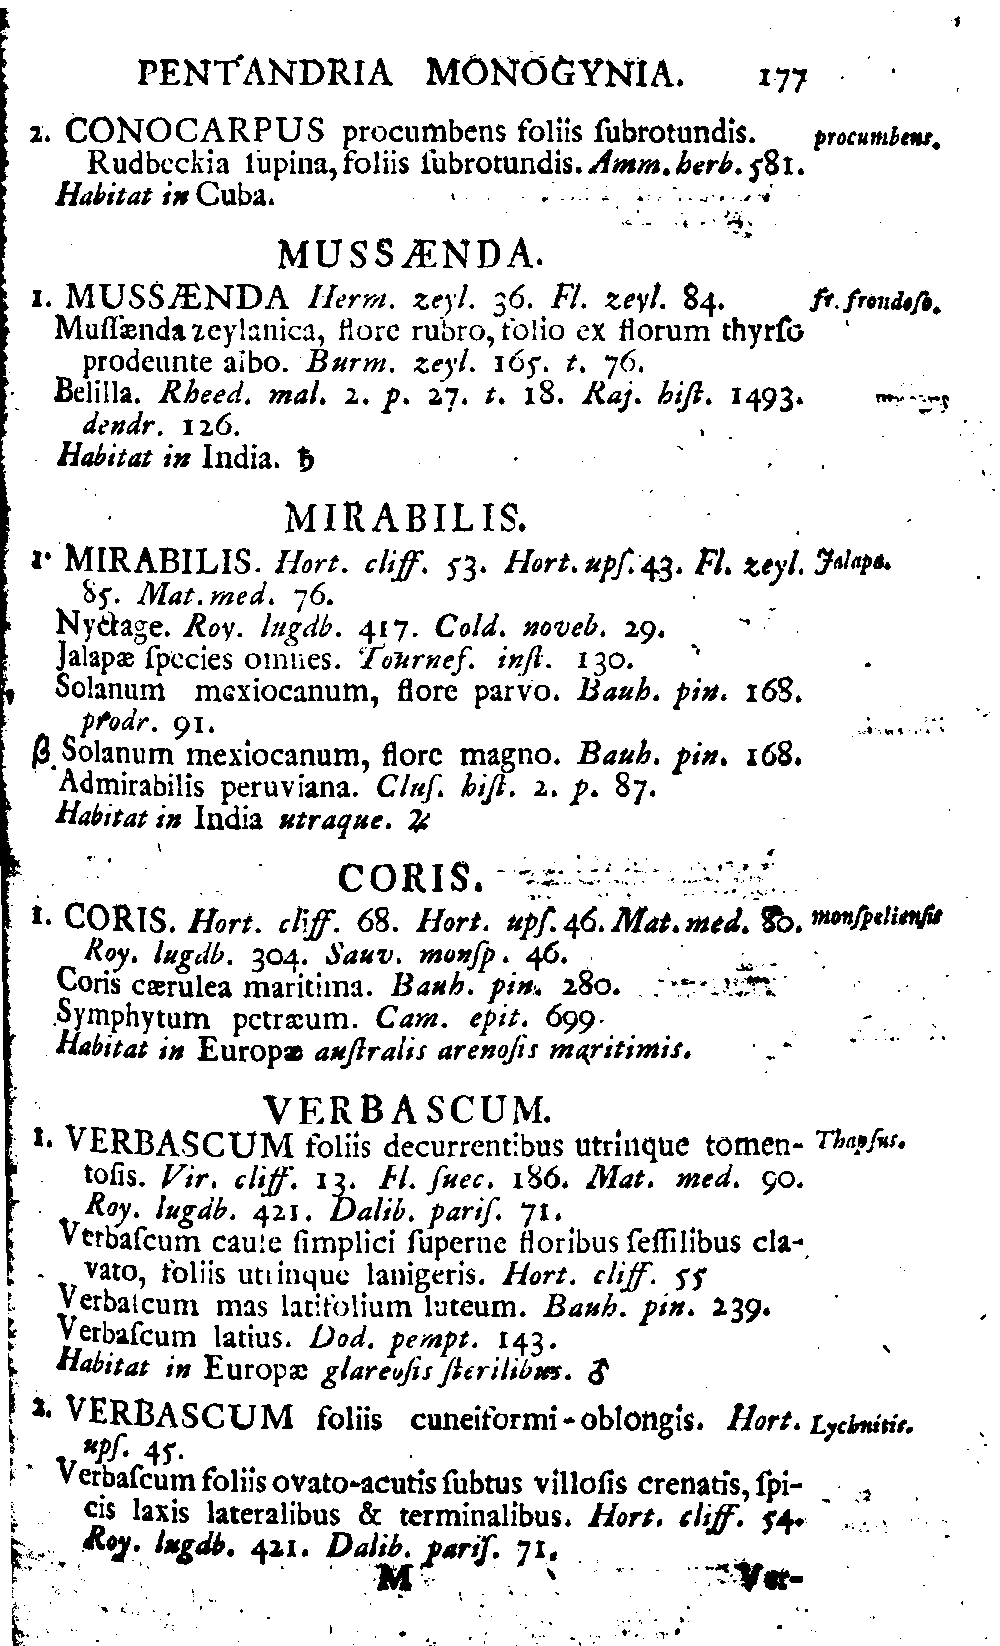 PENTANDRIA MONOGYNIA. 177
2. CONOCARPUS procumbens foliis ſubrotundis. procumbens.
Rudbeckia ſupina, foliis ſubrotundis. Amm. herb. 581.
Habitat in Cuba.
MUSSÆNDA.
1. MUSSÆNDA Herm. zeyl. 36. Fl. zeyl. 84. fr. frondoſo.
Muſſænda zeylanica, flore rubro, folio ex florum thyrſo
prodeunte albo. Burm. zeyl. 165. t. 76.
Belilla. Rheed. mal. 2. p. 27. t. 18. Raj. hiſt. 1493.
dendr. 126.
Habitat in India. ♄
MIRABILIS.
1. MIRABILIS. Hort. cliff. 53. Hort. upſ. 43. Fl. zeyl. Jalapa.
85. Mat. med. 76.
Nyctage. Roy. lugdb. 417. Cold. noveb. 29.
Jalapæ ſpecies omnes. Tournef. inſt. 130.
Solanum mexiocanum, flore parvo. Bauh. pin. 168.
prodr. 91.
β. Solanum mexiocanum, flore magno. Bauh. pin. 168.
Admirabilis peruviana. Cluſ. hiſt. 2. p. 87.
Habitat in India utraque. ♃
CORIS.
1. CORIS. Hort. cliff. 68. Hort. upſ. 46. Mat. med. 80. monſpelienſis
Roy. lugdb. 304. Sauv. monſp. 46.
Coris cærulea maritima. Bauh. pin. 280.
Symphytum petræum. Cam. epit. 699.
Habitat in Europæ auſtralis arenoſis maritimis.
VERBASCUM.
1. VERBASCUM foliis decurrentibus utrinque tomen- Thapſus.
toſis. Vir. cliff. 13. Fl. ſuec. 186. Mat. med. 90.
Roy. lugdb. 421. Dalib. pariſ. 71.
Verbaſcum caule ſimplici ſuperne floribus ſeſſilibus cla-
vato, foliis utrinque lanigeris. Hort. cliff. 55
Verbaſcum mas latifolium luteum. Bauh. pin. 239.
Verbaſcum latius. Dod. pempt. 143.
Habitat in Europæ glareoſis ſterilibus. ♂
2. VERBASCUM foliis cuneiformi-oblongis. Hort. Lychnitis.
upſ. 45.
Verbaſcum foliis ovato-acutis ſubtus villoſis crenatis, ſpi-
cis laxis lateralibus & terminalibus. Hort. cliff. 54.
Roy. lugdb. 421. Dalib. pariſ. 71.
M Ver-